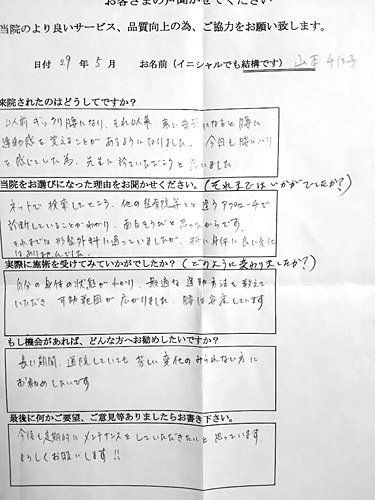 お客さまの声聞かせてください
当院のより良いサービス、品質向上の為、ご協力をお願い致します。
日付 29年 5月 お名前（イニシャルでも結構です） 山本
来院されたのはどうしてですか？
以前ギックリ腰になり、それ以来 長い 腰に
違和感を覚えることがあるようになりました。今日も腰にハリ
を感じていた為、先生に診ていただこうと思いました。
当院をお選びになった理由をお聞かせください。（それまではいかがでしたか？）
ネットで検索したところ、他の整骨院とは違うアプローチで
診断していることがわかり、面白そうだと思ったからです。
それまでは形整外科に通っていましたが、特に身体に良い変化は
ありませんでした。
実際に施術を受けてみていかがでしたか？（どのように変わりましたか？）
自分の身体の状態がわかり、最適な運動方法を教えて
いただき、可動範囲が広がりました。腰は安定しています
もし機会があれば、どんな方へお勧めしたいですか？
長い期間、通院していても 芳しい変化のみられない方に
お勧めしたいです
最後に何かご要望、ご意見等ありましたらお書き下さい。
今後も定期的にメンテナンスをしていただきたいと思っています。
よろしくお願いします!!